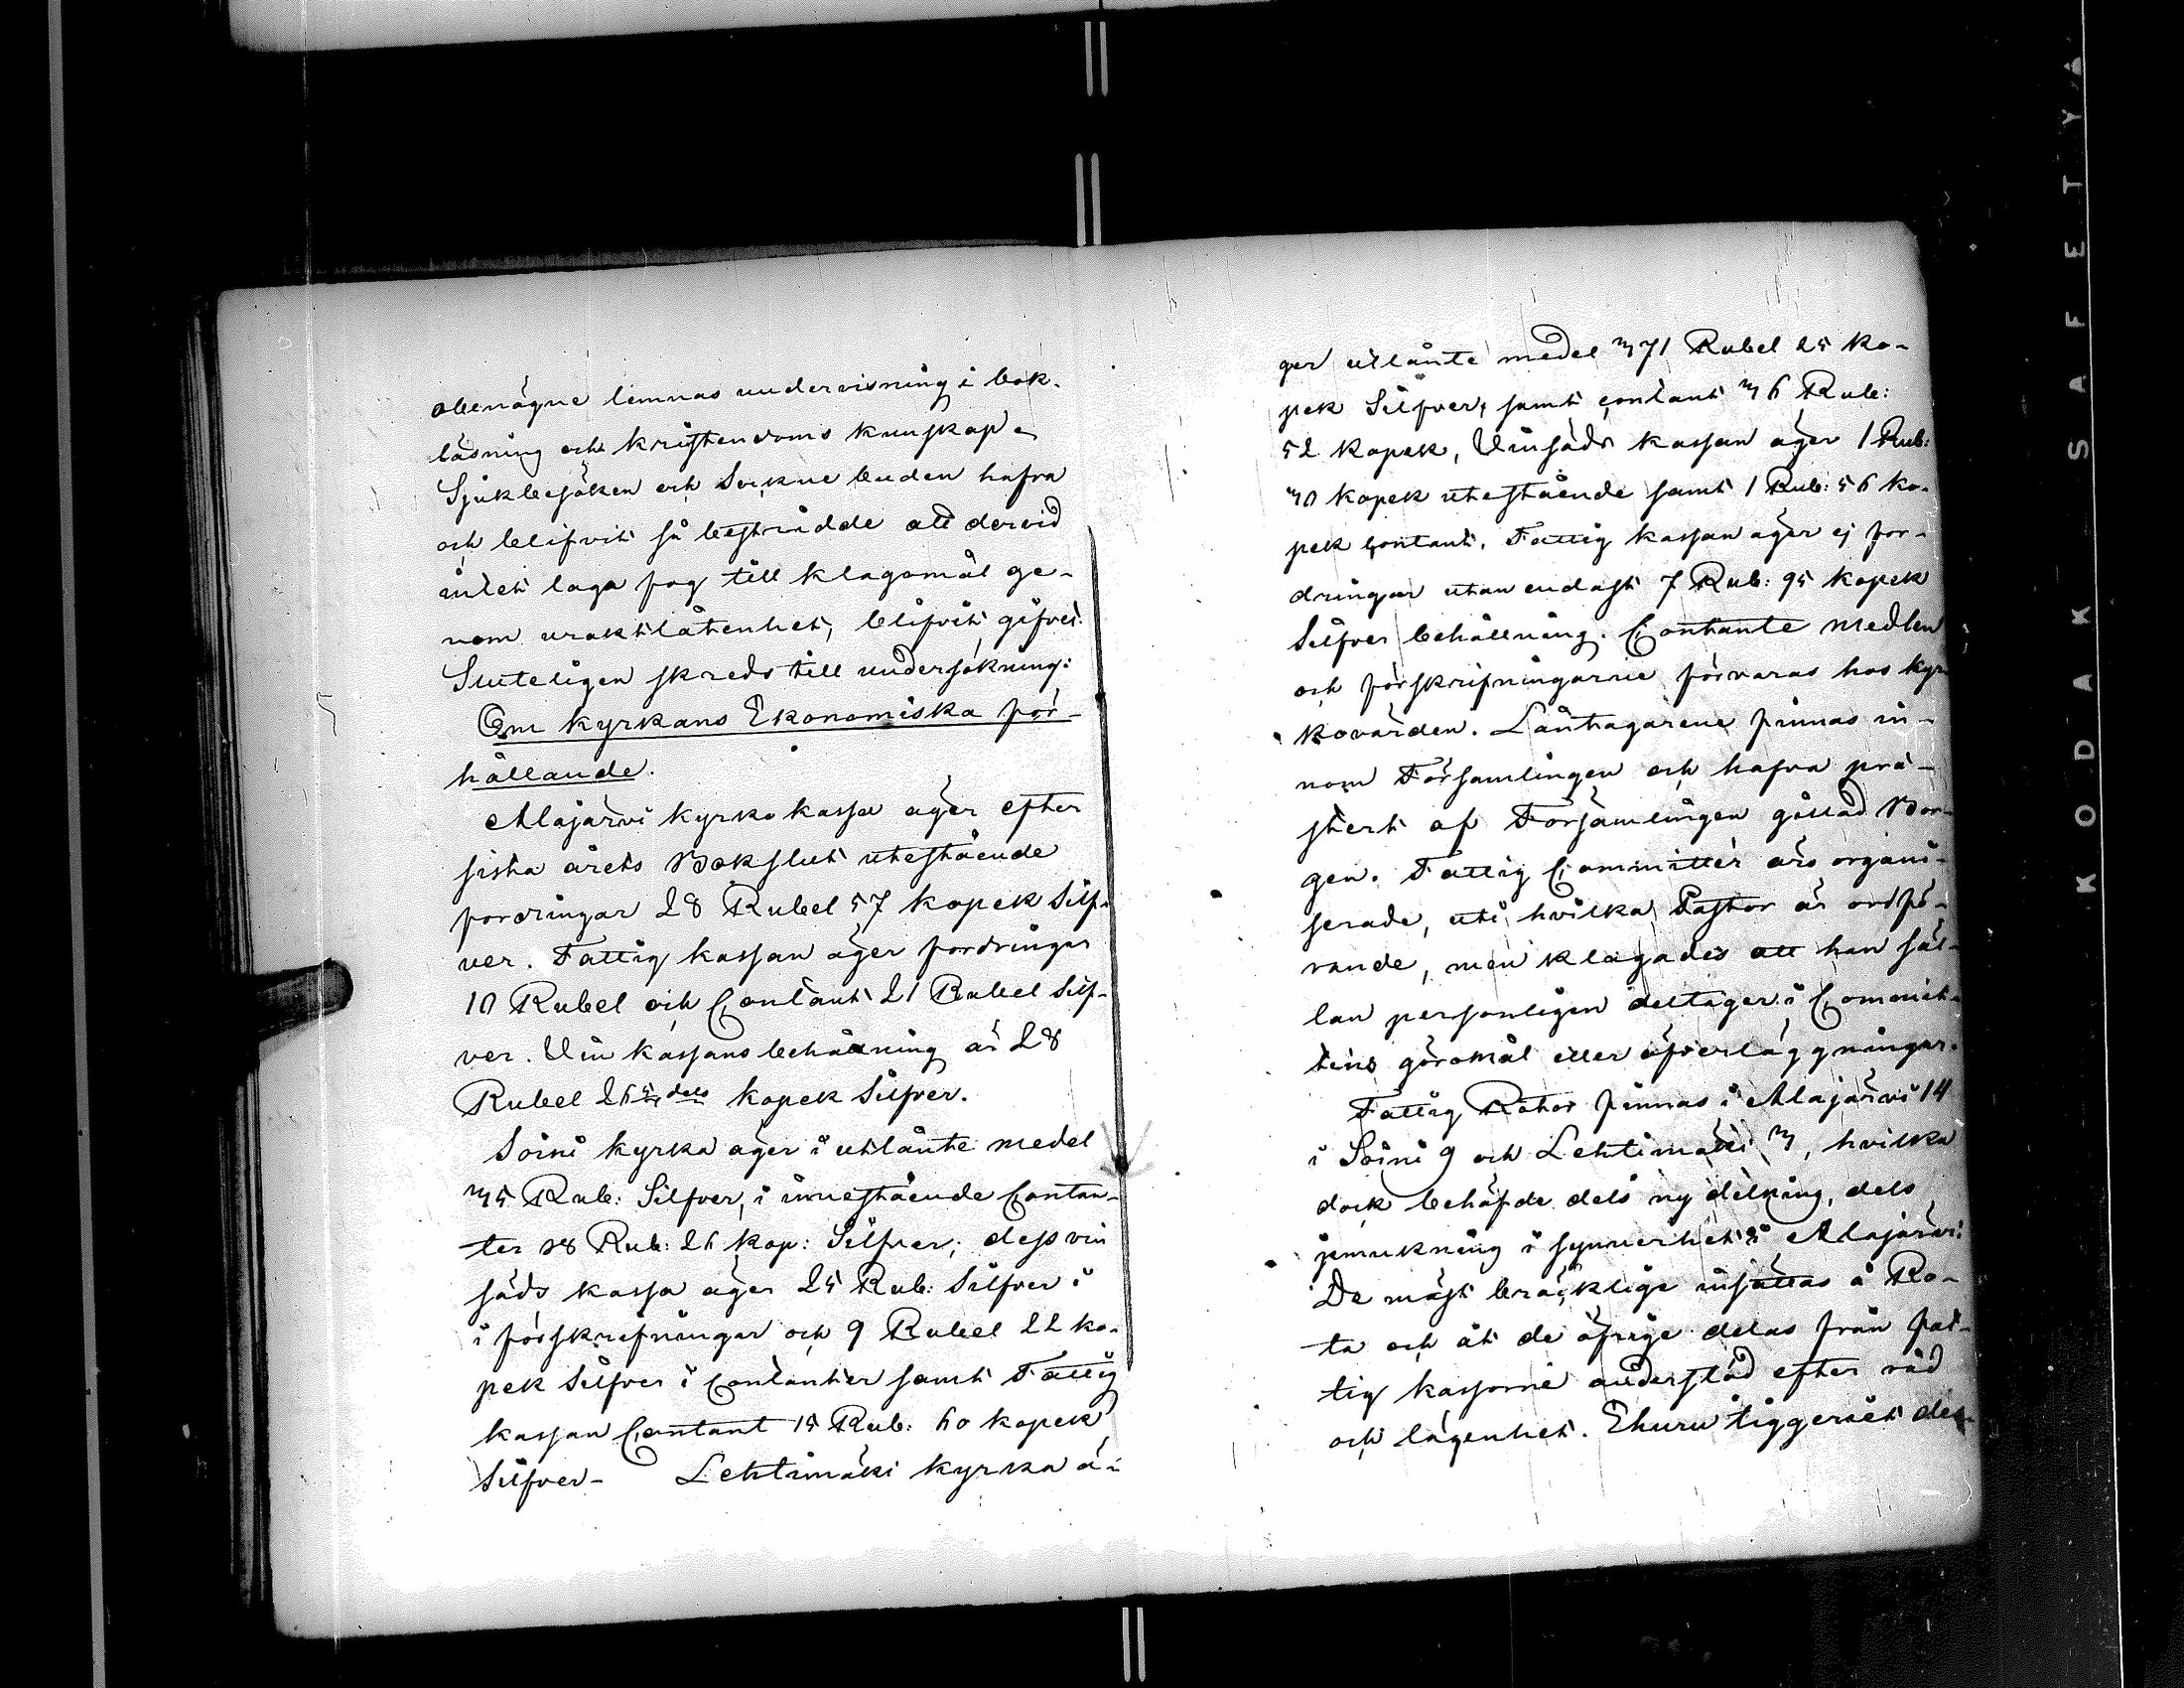 obenägne lemnas undervisning i bok-
läsning och kristendoms kunskap.
Sjukbesöken och Sockne buden hafva
och blifvit så bestridde att dervid
intet laga fog till klagomål ge-
nom uraktlåtenhet, blifvit gifvet.
Sluteligen skreds till undersökning:
Om kyrkans Ekonomiska för-
hållande.
Alajärvi kyrko kassa äger efter
sista årets Bokslut utestående
fordringar 28 Rubel 57 kopek Silf-
ver. Fattig kassan äger fordringar
10 Rubel och Contant 21 Rubel Silf-
ver. Vin kassans behållning är 28
Rubel 26 dels kopek Silfver.
Soini kyrka äger i utlånte medel
35 Rub: Silfver, i innestående Contan-
ter 18 Rub: 26 kop: Silfver; dess vin
säds kassa äger 25 Rub: Silfver i
i förskrifningar och 9 Rubel 22 ko-
pek Silfver i Contanter samt Fattig
kassan Contant 15 Rub: 60 kopek
Silfver- Lehtimäki kyrka ä-
ger utlånte medel 371 Rubel 25 ko-
pek Silfver, samt contant 36 Rub:
52 kopek, Vinsäds kassan äger 1 Rub:
30 kopek utestående samt 1 Rub: 56 ko-
pek contant. Fattig kassan äger ej for-
dringar utan endast 7 Rub: 95 kopek
Silfver behållning. Contante medlen
och förskrifningarne förvaras hos kyr-
kovärden. Låntagarene finnas in-
nom Församlingen och hafva prä-
stert af Församlingen gillad Bor-
gen. Fattig Committér äro organi-
serade, uti hvilka Pastor är ordfö-
rande, men klagades att han säl-
lan personligen deltager i Commit-
téns göromål eller öfverläggningar.
Fattig Rotar finnas i Alajärvi 14
i Soini 9 och Lehtimäki 3, hvilka
dock behöfde dels ny delning, dels
jemnkning i synnerhet i Alajärvi.
De mäst bräcklige insättas å Ro-
ta och åt de öfrige delas från fat-
tig kassorne understöd efter råd
och lägenhet. Ehuru tiggeriet